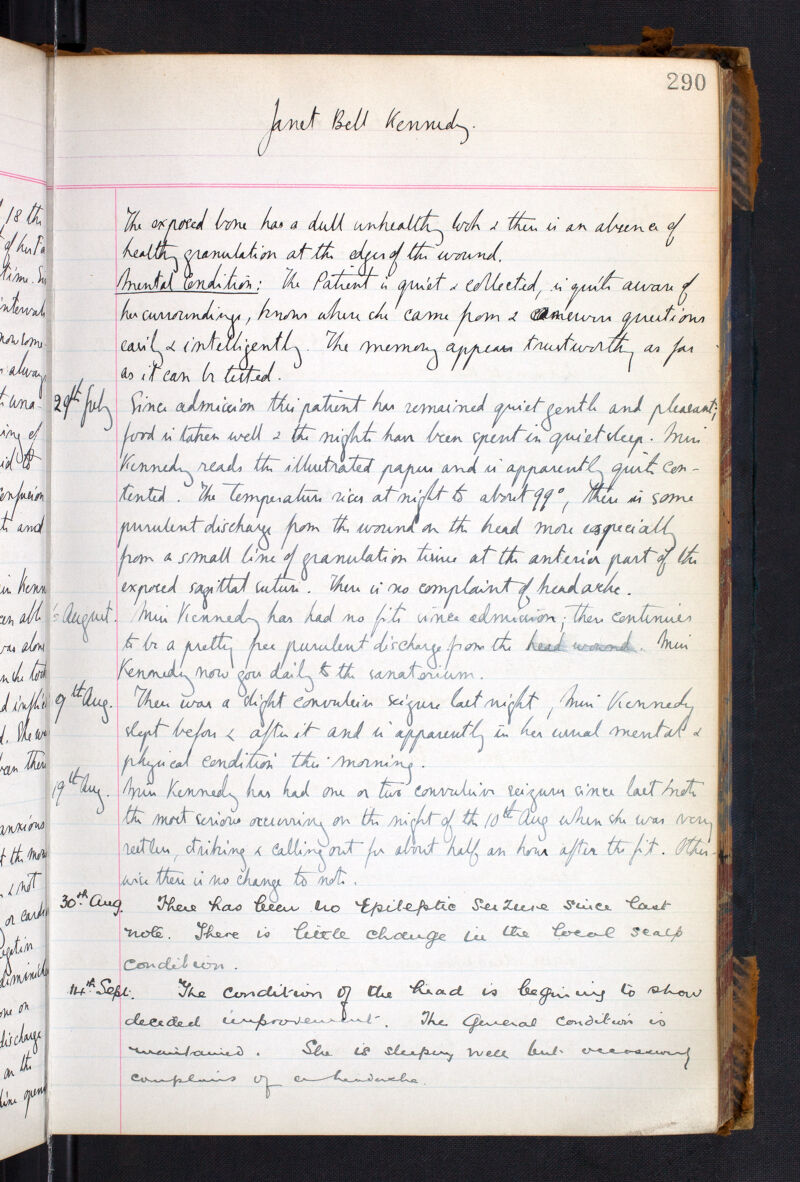 290
Janet Bell Kennedy.
The exposed bone has a dull unhealthy look & there is an absence of
healthy granulation at the edges of the wound.
Mental Condition: The Patient is quiet & collected, is quite aware of
her surroundings, knows where she came from & answers questions
easily & intelligently. The memory appears trustworthy as far
as it can be tested.
29th July Since admission this patient has remained quiet gentle and pleasant;
food is taken well & the nights have been spent in quiet sleep. Miss
Kennedy reads the illustrated papers and is apparently quite con-
tented. The temperature rises at night to about 99°, there is some
purulent discharge from the wound on the head more especially
from a small line of granulation tissue at the anterior part of the
exposed sagittal suture. There is no complaint of headache.
August. Miss Kennedy has had no fits since admission; there continues
to be a pretty free purulent discharge from the head wound. Miss
Kennedy now goes daily to the sanatorium.
9th Aug. There was a slight convulsive seizure last night, Miss Kennedy
slept before & after it and is apparently in her usual mental &
physical condition this morning.
19th Aug. Miss Kennedy has had one or two convulsive seizures since last note
the most serious occurring on the night of the 10th Aug when she was very
restless, striking & calling out for about half an hour after the fit. Other-
wise there is no change to note.
30th Aug. There has been no Epileptic Seizure since last
note. There is little change in the local scalp
condition.
14th Sept. The condition of the head is begining to show
decided improvement. The General condition is
maintained. She is sleeping well but occasionly
complains of a headache.